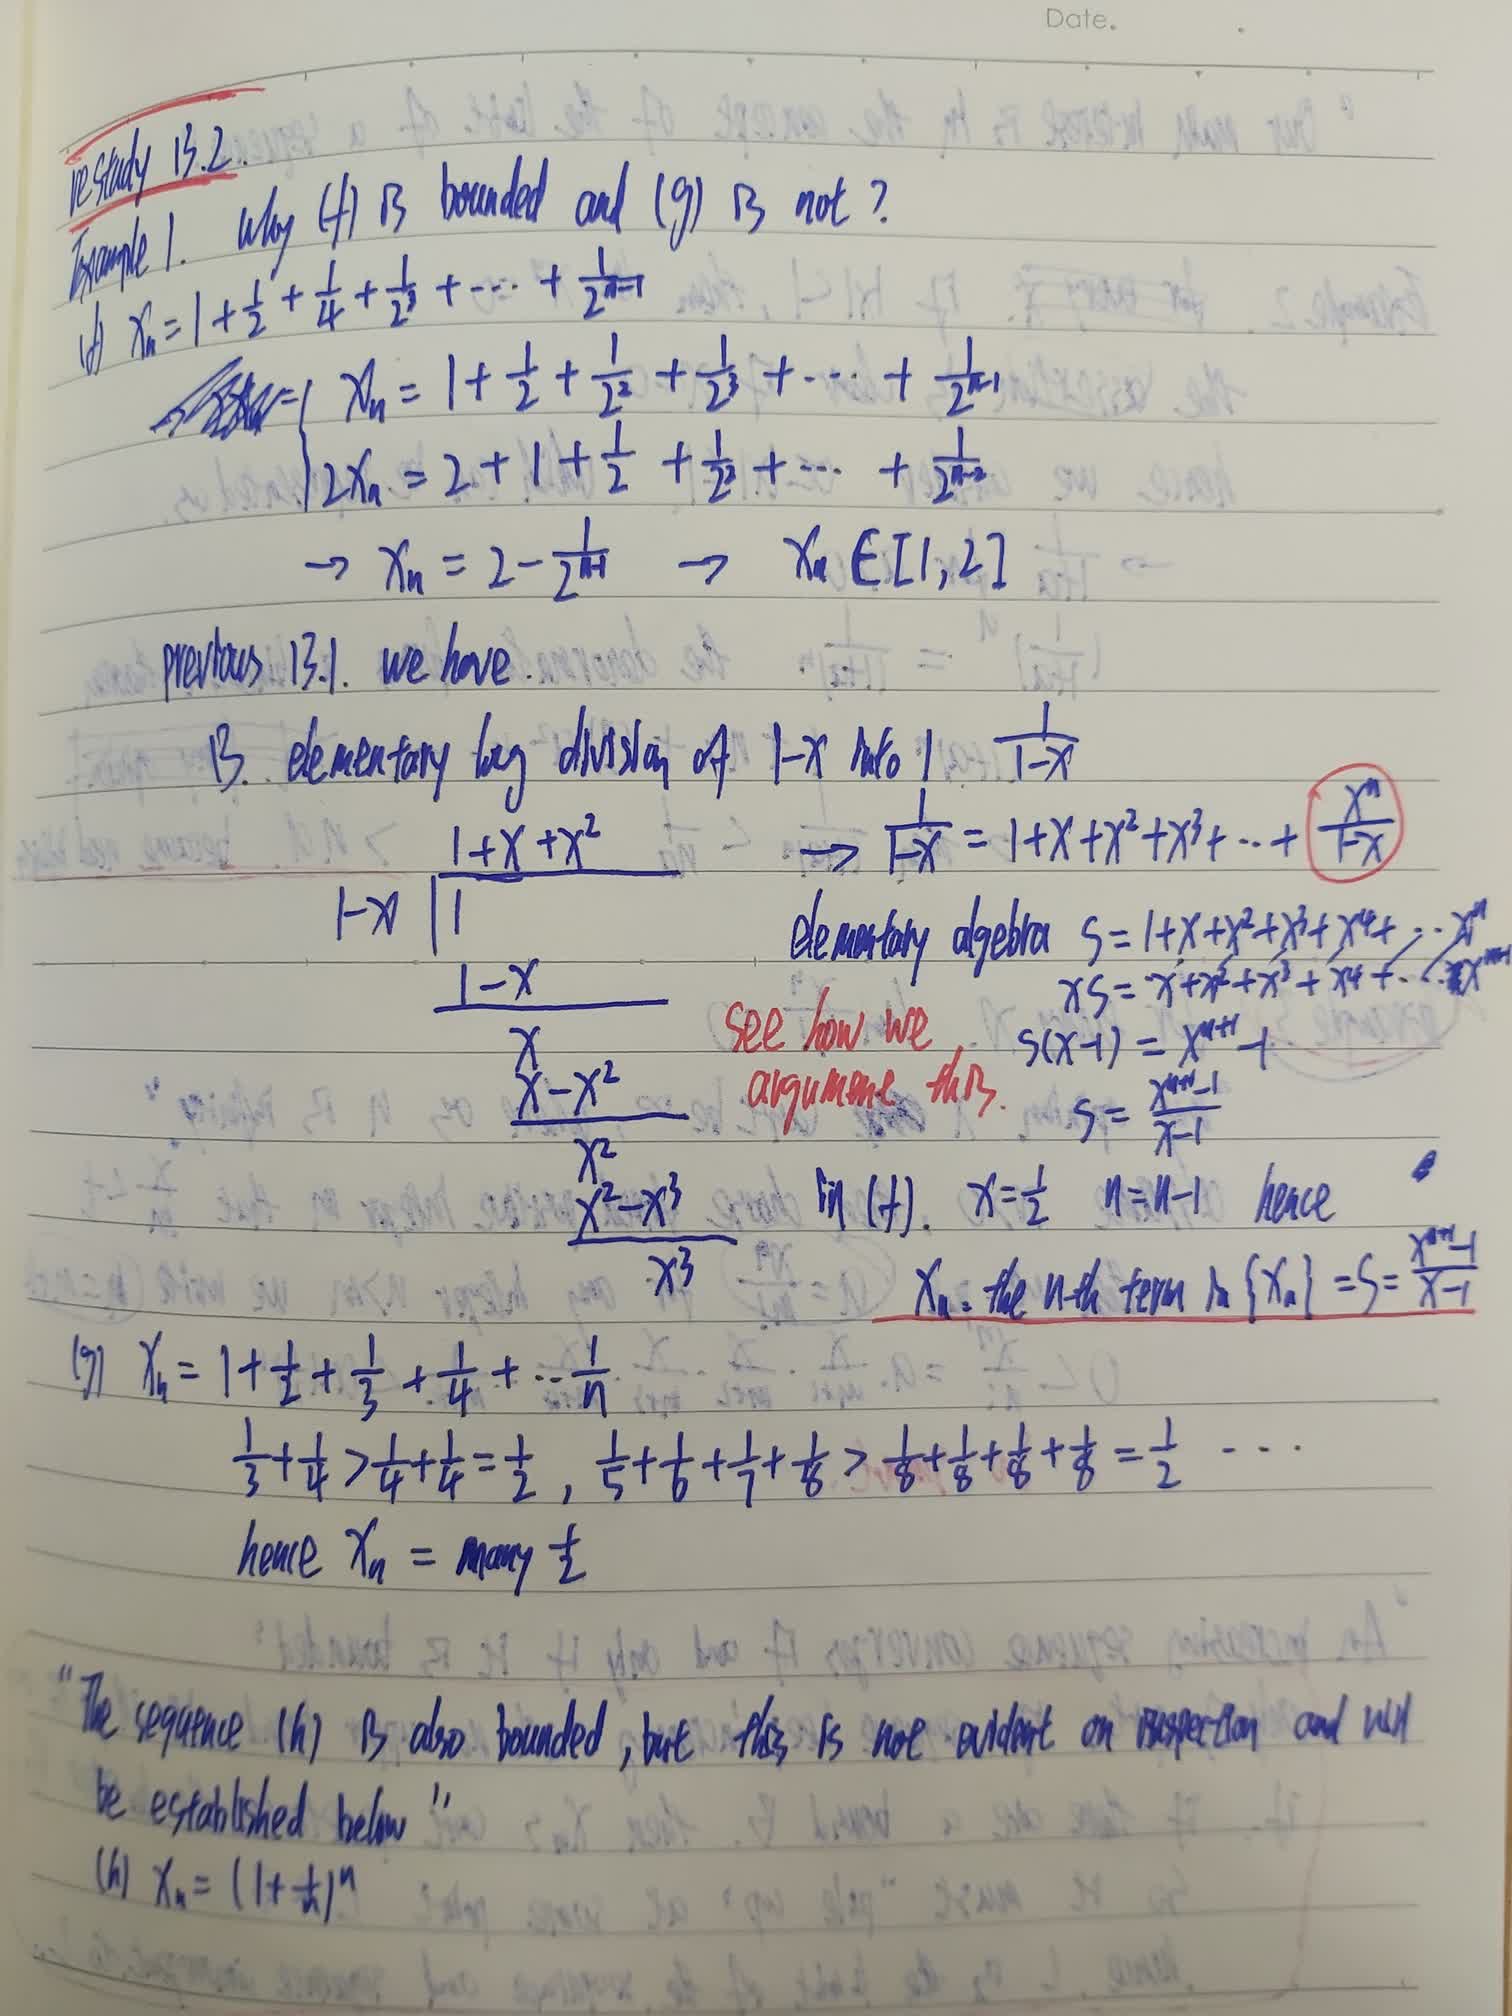 Date.
restudy 13.2.
Example 1. Why (f) is bounded and (g) is not?
(f) xₙ = 1 + 1/2 + 1/4 + 1/2³ + ... + 1/2ⁿ⁻¹
xₙ = 1 + 1/2 + 1/2² + 1/2³ + ... + 1/2ⁿ⁻¹
2xₙ = 2 + 1 + 1/2 + 1/2² + ... + 1/2ⁿ⁻²
→ xₙ = 2 - 1/2ⁿ⁻¹ → xₙ ∈ [1, 2]
previous 13.1. we have.
13. elementary long division of 1-x into 1 1/(1-x)
1 + x + x² → 1/(1-x) = 1 + x + x² + x³ + ... + xⁿ/(1-x)
1-x | 1
elementary algebra S = 1 + x + x² + x³ + x⁴ + ... xⁿ
1 - x
xS = x + x² + x³ + x⁴ + ... xⁿ⁺¹
x
see how we
S(x-1) = xⁿ⁺¹ - 1
x - x²
argument this.
S = (xⁿ⁺¹-1)/(x-1)
x²
x² - x³
in (f). x = 1/2 n = n-1 hence
x³
xₙ = the n-th term in {xₙ} = S = (xⁿ⁺¹-1)/(x-1)
(g) xₙ = 1 + 1/2 + 1/3 + 1/4 + ... 1/n
1/3 + 1/4 > 1/4 + 1/4 = 1/2, 1/5 + 1/6 + 1/7 + 1/8 > 1/8 + 1/8 + 1/8 + 1/8 = 1/2 ...
hence xₙ = many 1/2
"The sequence (h) is also bounded, but this is not evident on inspection and will
be established below"
(h) xₙ = (1 + 1/n)ⁿ